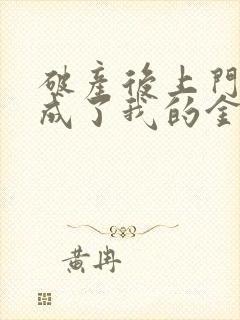 破產後上門
成了我的金
黃冉